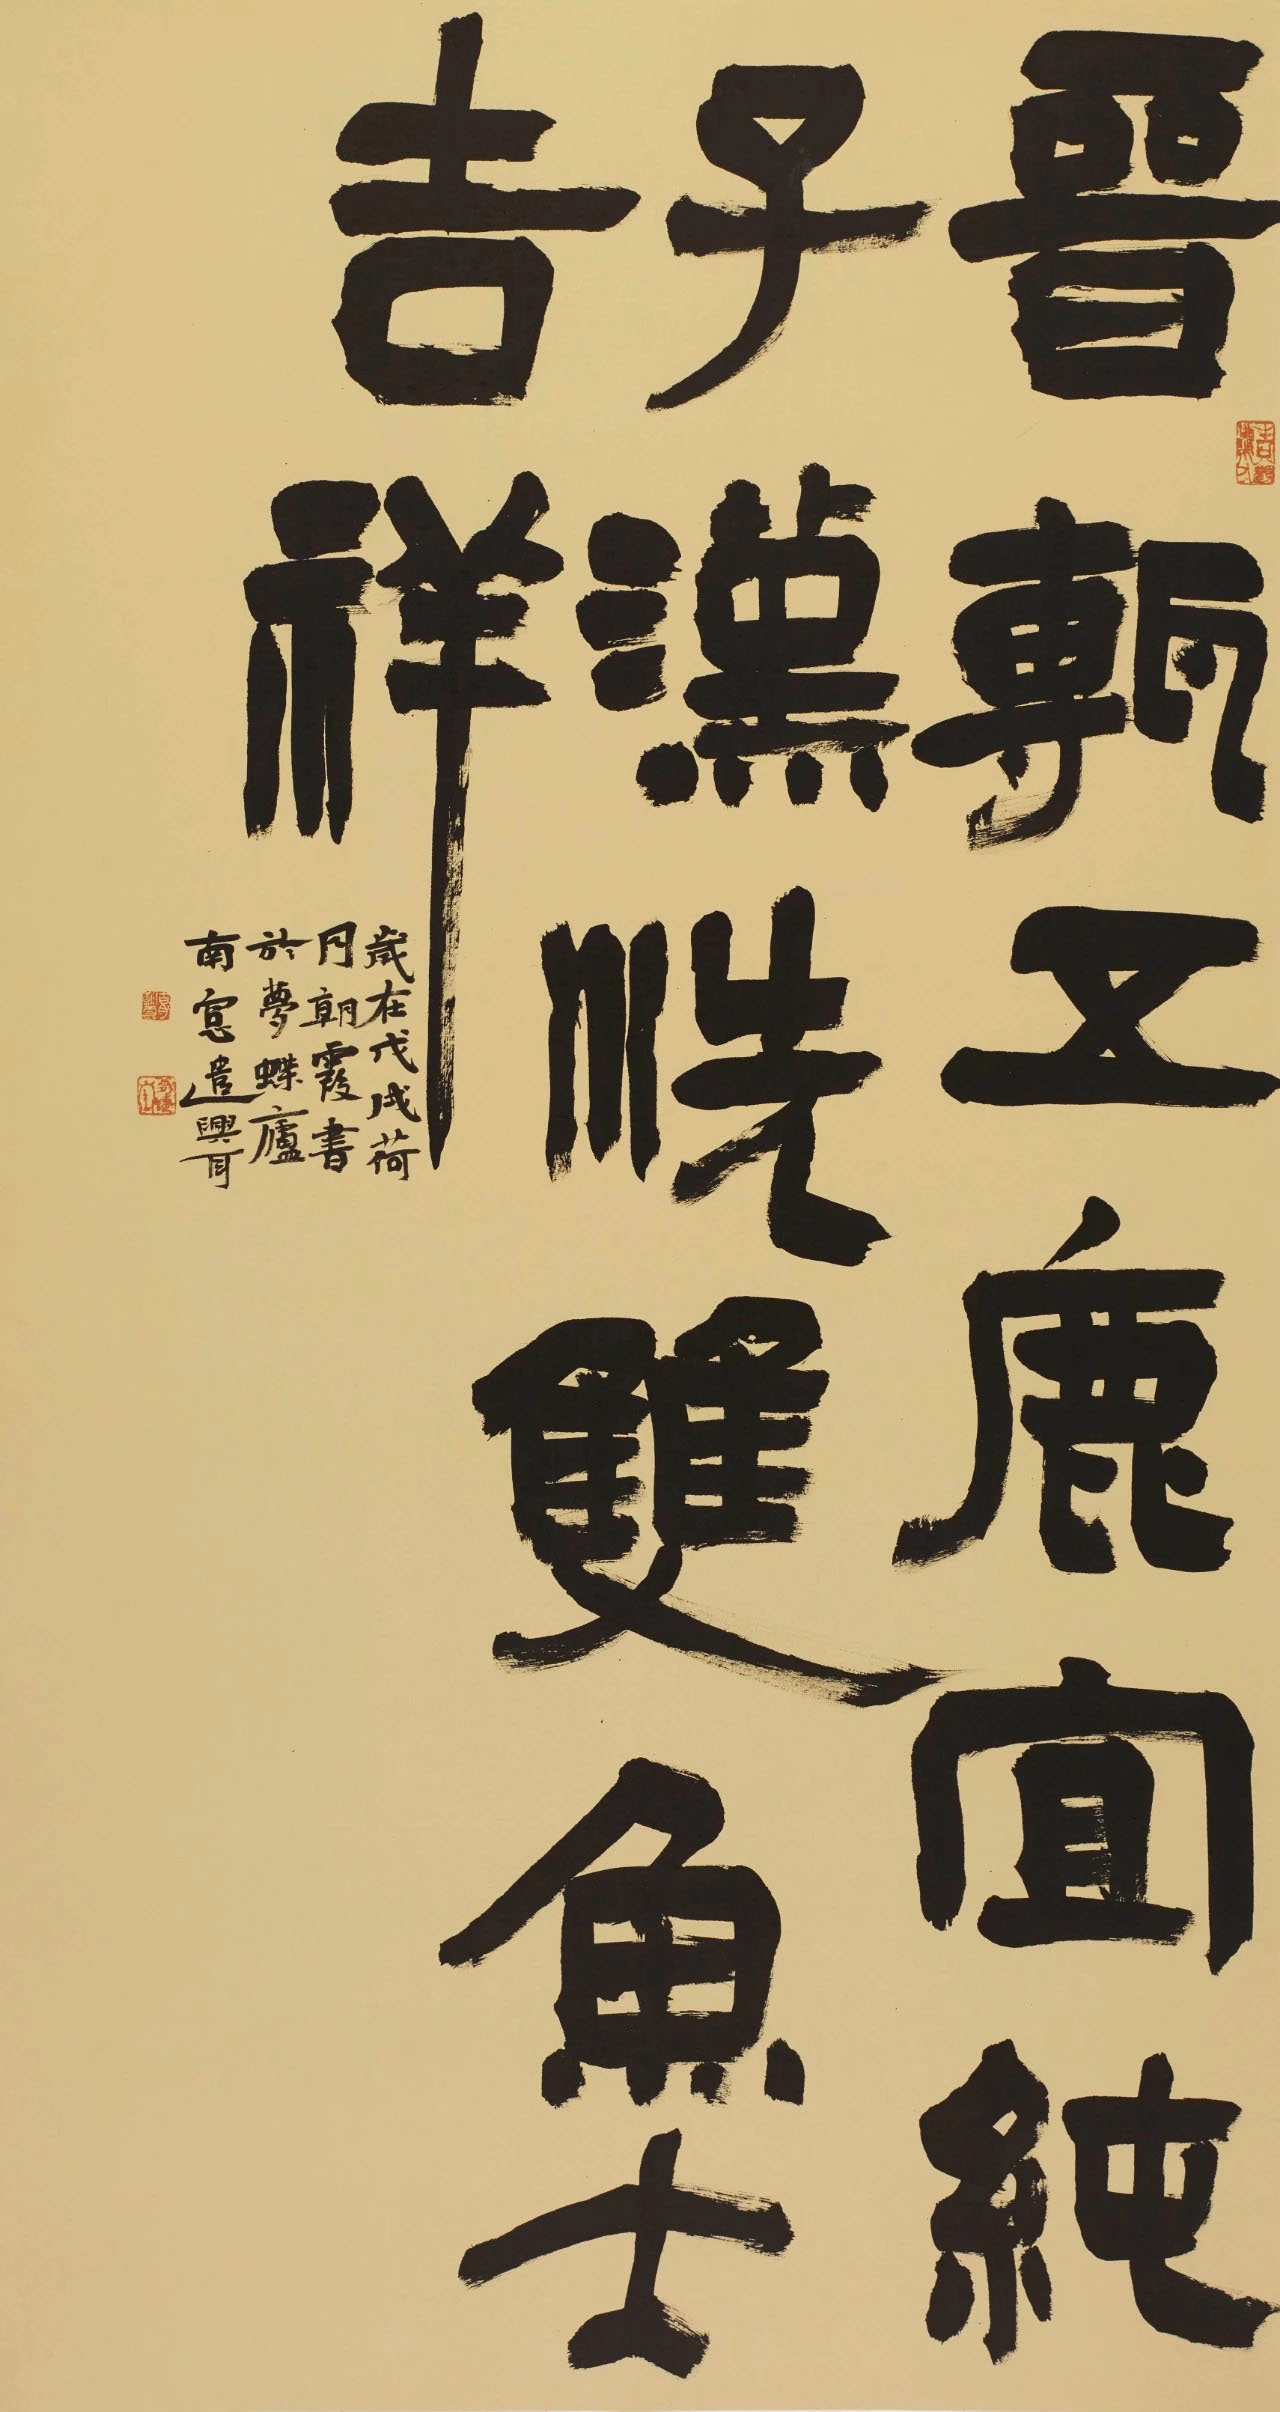 晉甎五鹿宜純
子漢洗雙魚士
吉祥
歲在戊戌荷
月朝霞書
於夢蝶廬
南窗遣興耳